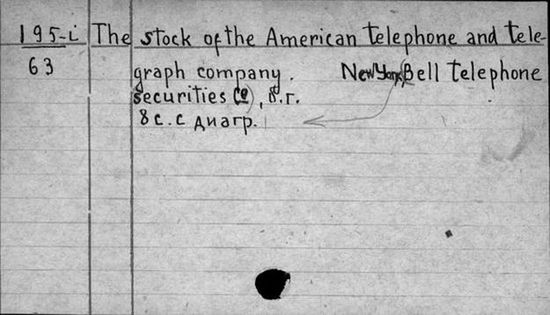 195-i The stock of the American telephone and tele-
63 graph company. New York, Bell telephone
securities Co, б.г.
8 с. с диагр.